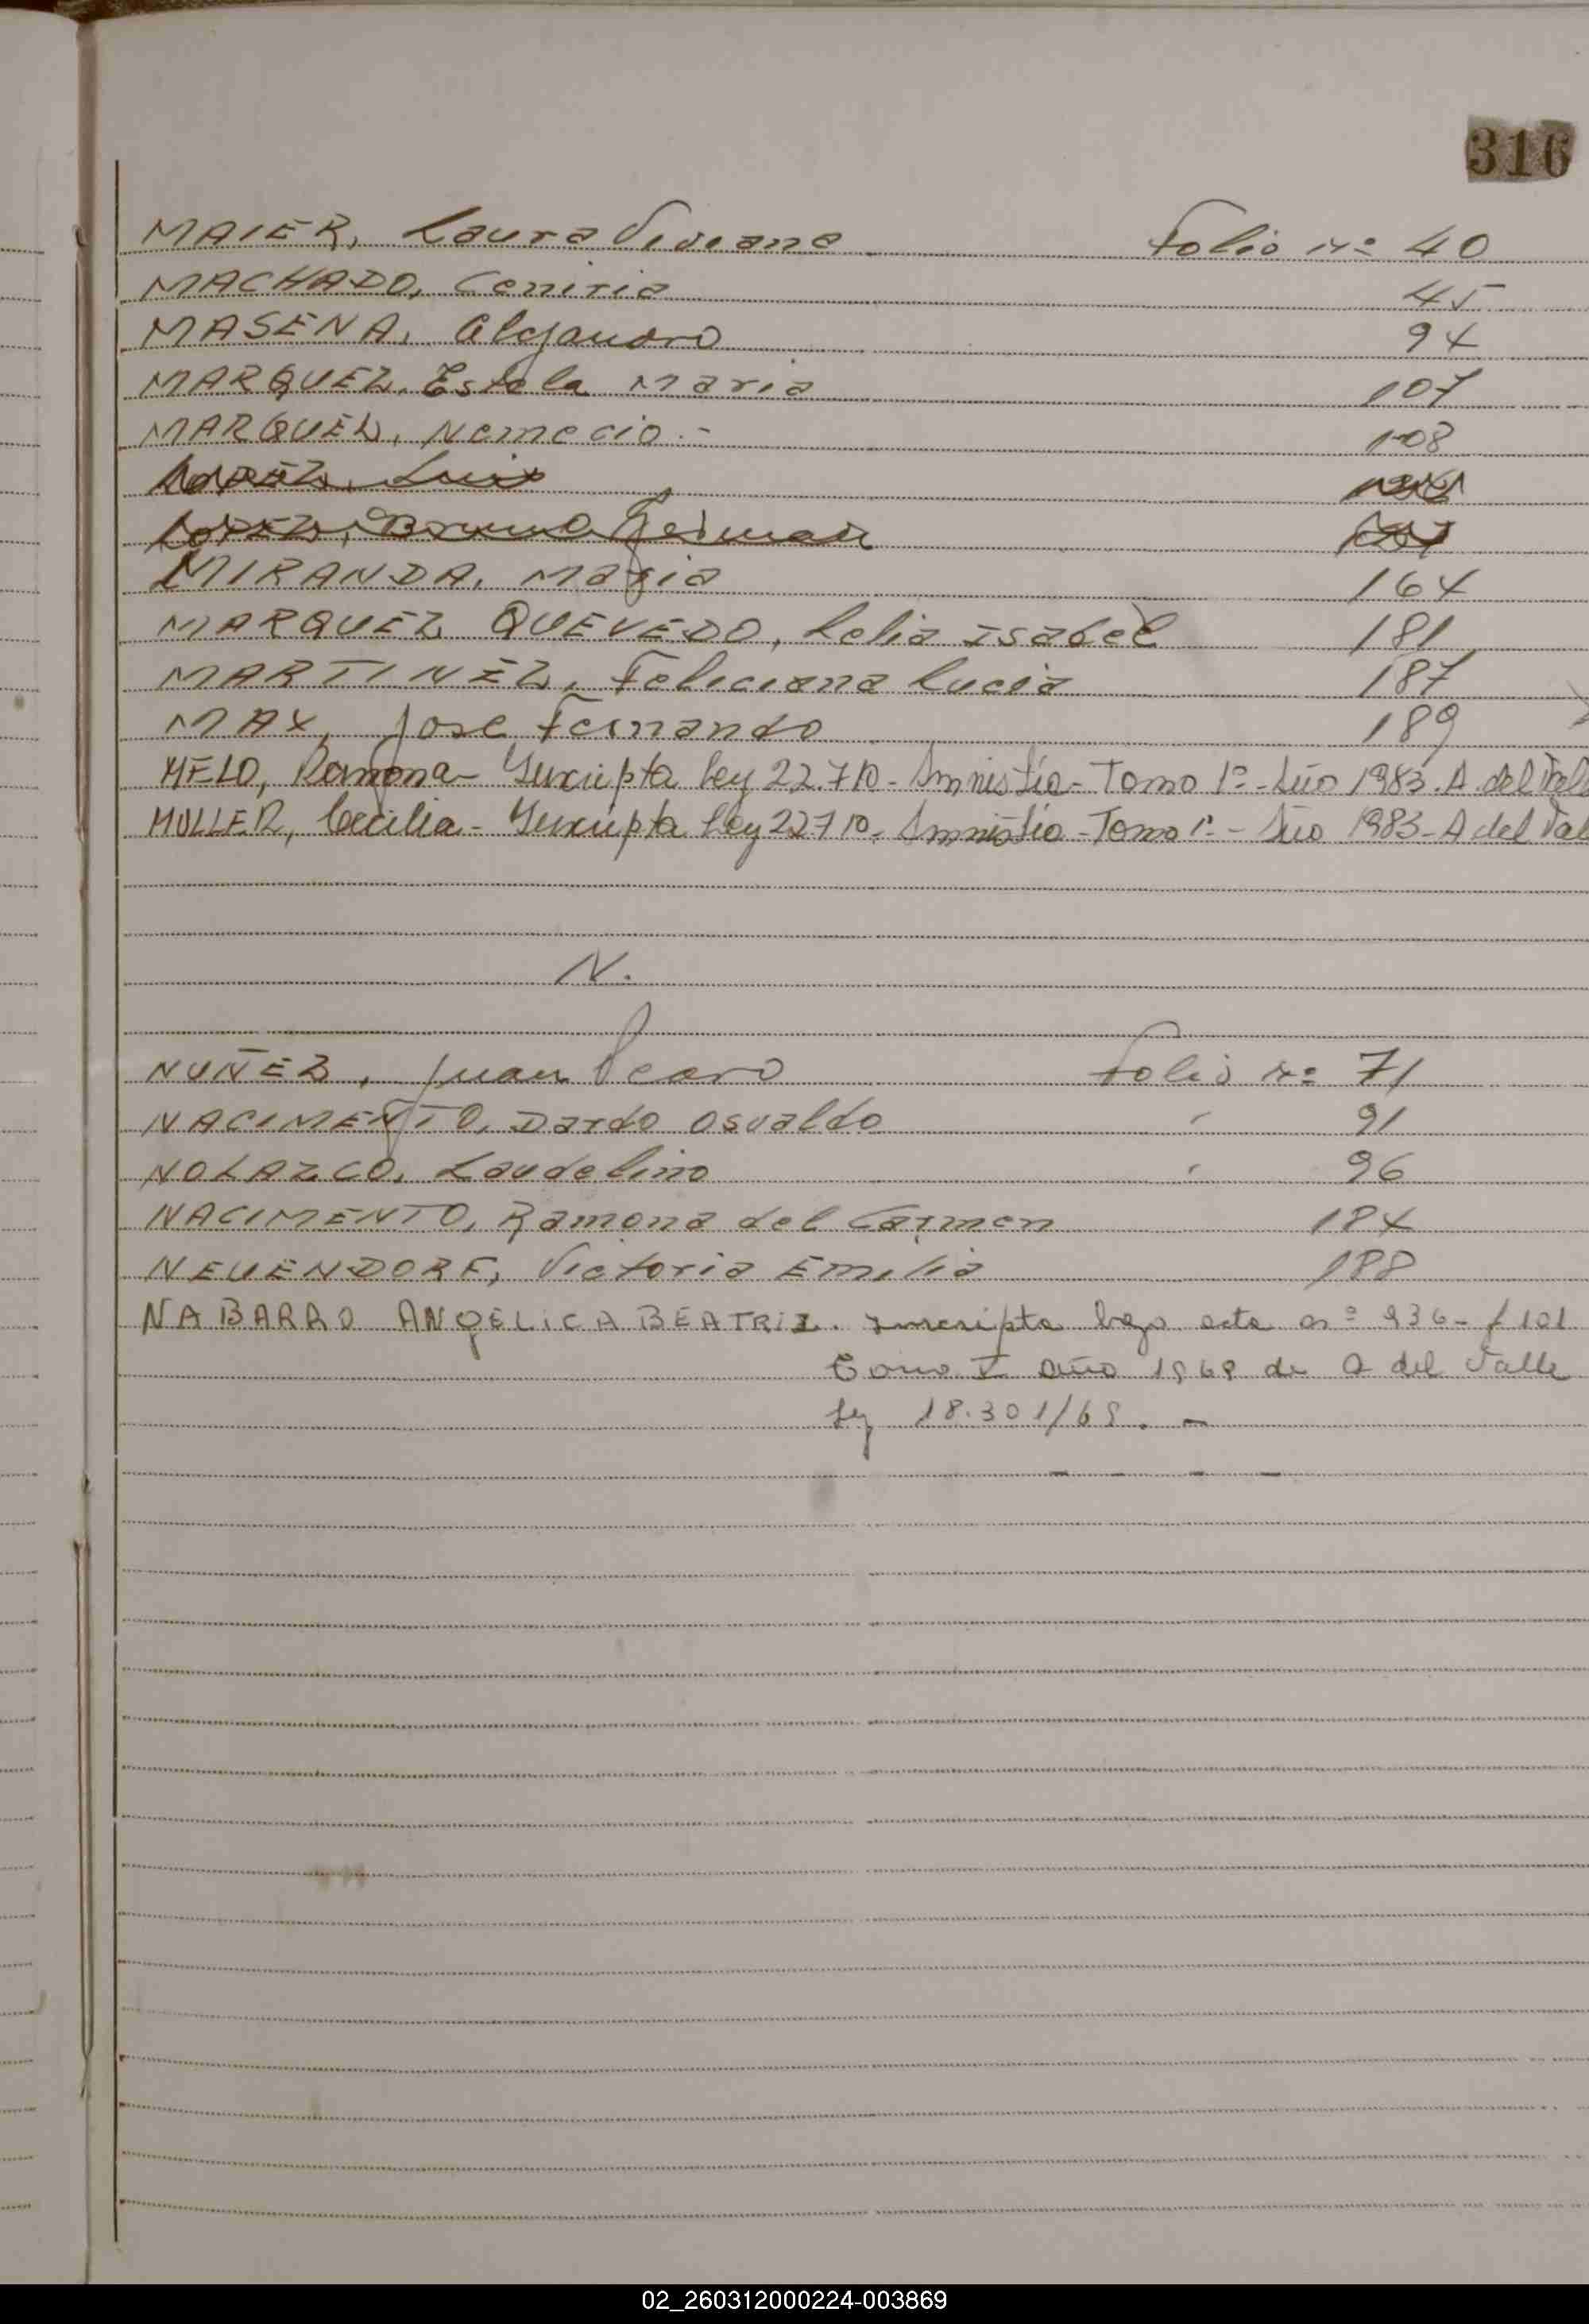 316
MAIER, Laura Viviana Folio nº 40
MACHADO, Ceniria 45
MASENA, Alejandro 94
MARQUEZ, Estela Maria 107
MARQUEZ, Nemecio.- 108
LOPEZ, Luis
LOPEZ, Bruno German
MIRANDA, Maria 164
MARQUEZ QUEVEDO, Lelia Isabel 181
MARTINEZ, Feliciana Lucia 187
MAX, Jose Fernando 189
MELO, Ramona- Inscripta Ley 22.710- Amnistía- Tomo 1º- Año 1983. A. del Valle
MULLER, Cecilia- Inscripta Ley 22710. Amnistío- Tomo 1º- Año 1983- A del Val
N.
NUÑEZ, Juan Pedro Folio nº 71
NACIMENTO, Dardo Osvaldo " 91
NOLAZCO, Laudelino " 96
NACIMENTO, Ramona del Carmen 184
NEUENDORF, Victoria Emilia 188
NABARRO ANGELICA BEATRIZ. Inscripta bajo acta nº 936- f 101
Tomo V Año 1969 de A del Valle
Ley 18.301/69. -
- - - -
02_260312000224-003869